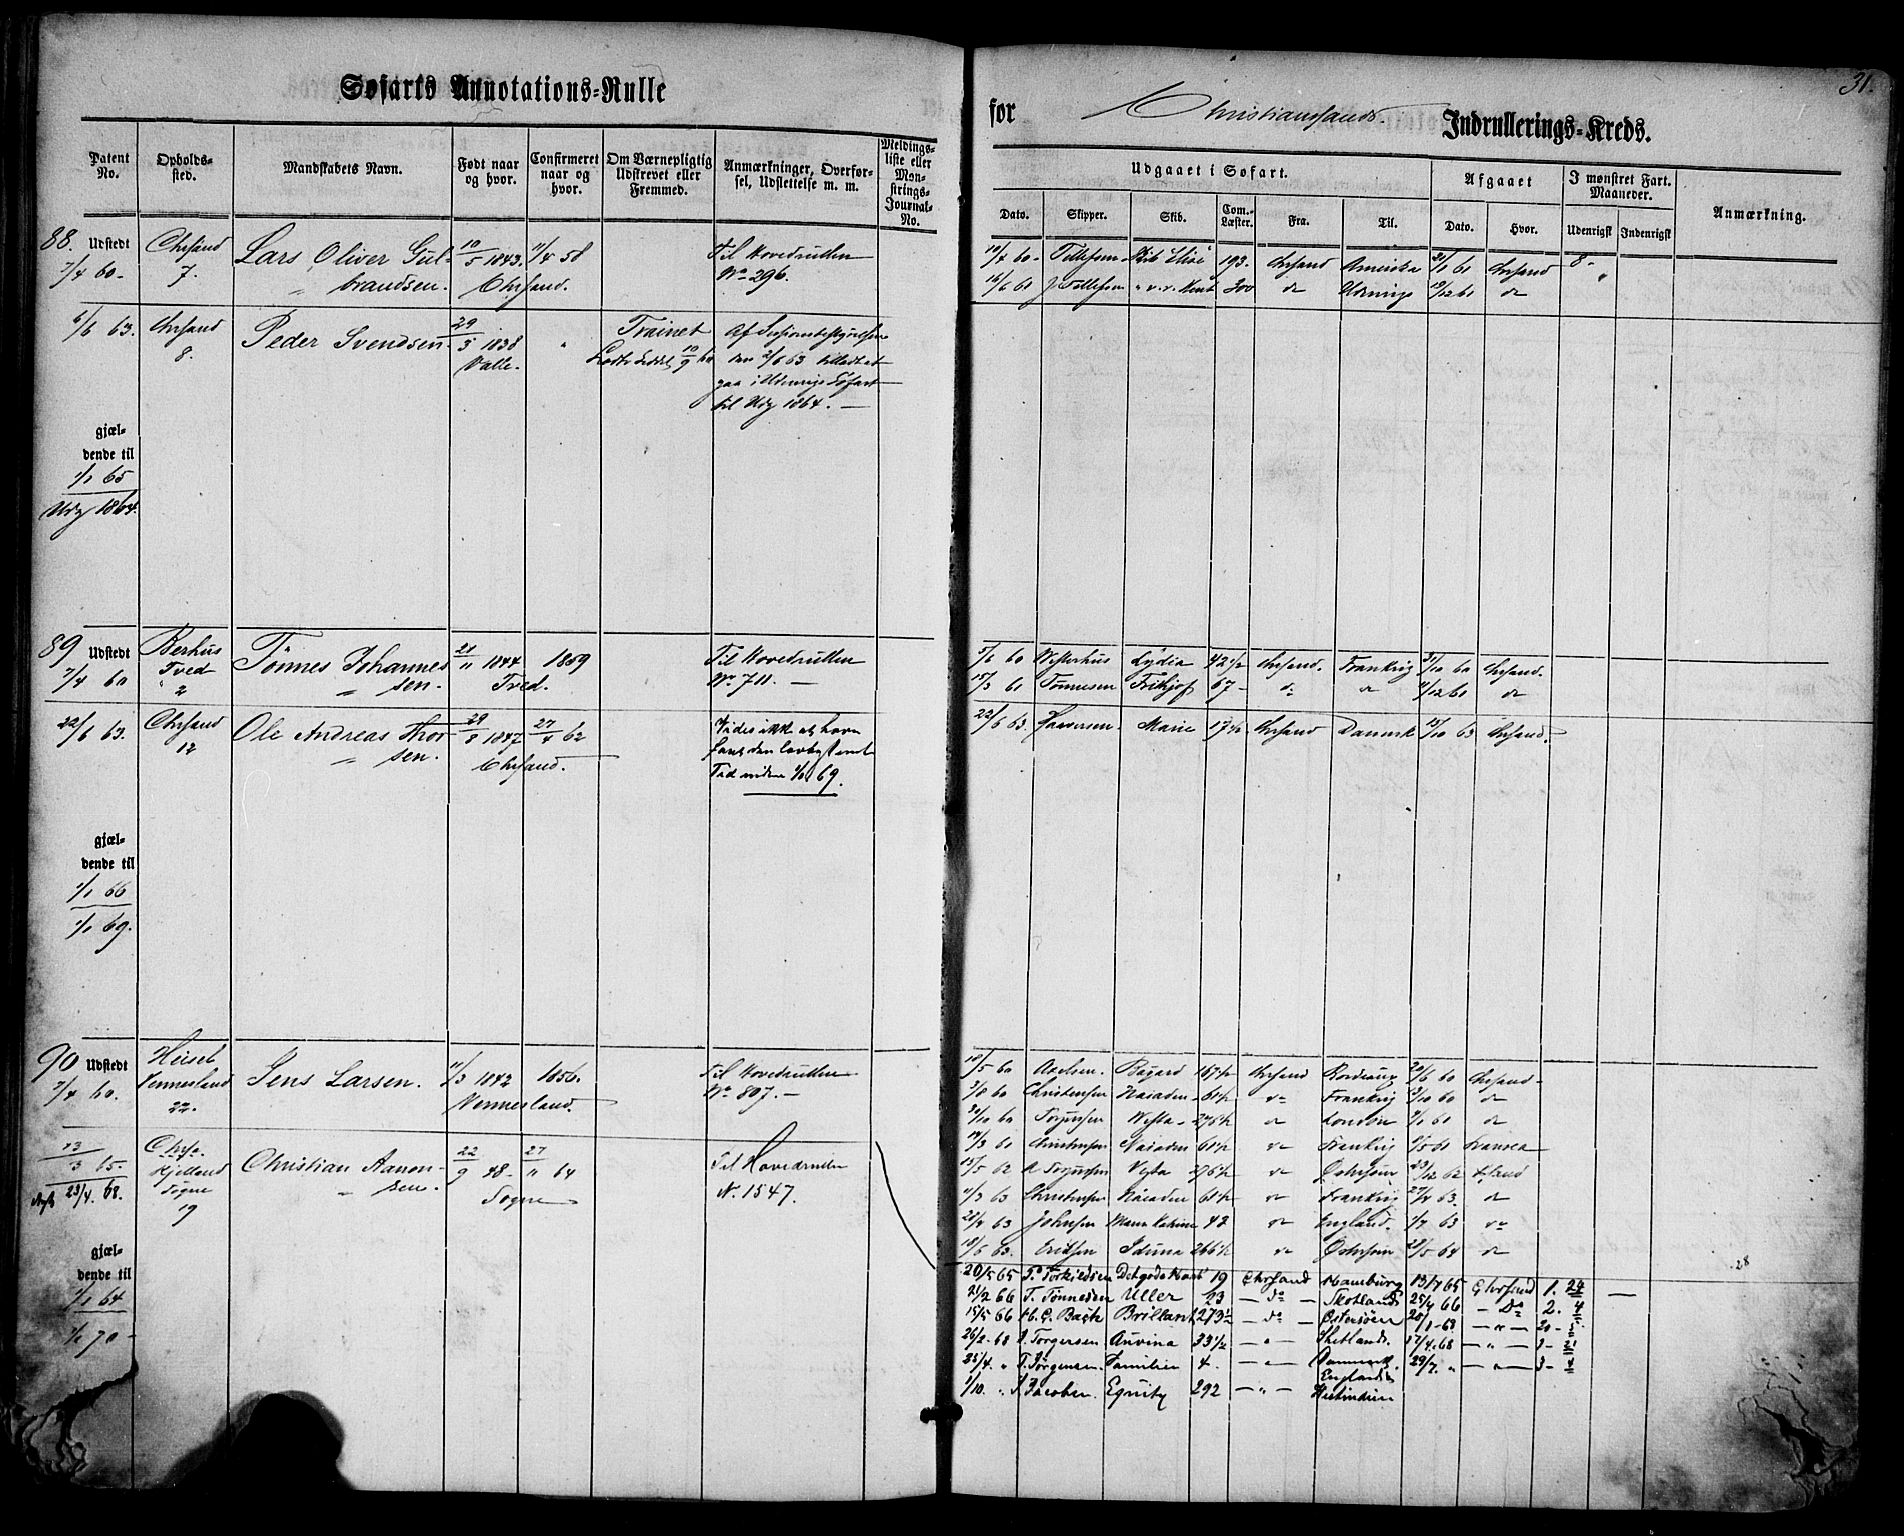 31.
Søfarts Annotations-Rulle
for Christianssands Indrullerings-Kreds.
Patent No. Opholds-sted. Mandskabets Navn. Født naar og hvor. Confirmeret naar og hvor. Om Værnepligtig Udskrevet eller Fremmed. Anmærkninger, Overførsel, Udslettelse m. m. Meldings-liste eller Mønstrings-Journal-No.
Udgaaet i Søfart. Afgaaet I mønstret Fart. Maaneder. Anmærkning.
Dato. Skipper. Skib. Com.-Læster. Fra. Til. Dato. Hvor. Udenrigsk Indenrigsk
88. Udstedt Chrsand Lars Oliver Gul- 10/5 1843. 11/4 58 Til Hovedrullen
7/4 60- 7. " brandsen. Chrsand. No 296.
6/6 63. Chrsand Peder Svendsen 29/5 1838 " Trainet
8. Valle.
den 2/6 63 tilladt at
gaa i Udenrigs Søfart
til Udg 1864. —
gjæl-
dende til
1/1 65
Udg 1864.
89 Udstedt Berhus Tönnes Johannes 21/11 1844 1859 Til Hovedrullen
7/4 60 Tved " sen. Tved. No 711. —
2
22/6 63. Chrsand Ole Andreas Thor 29/8 1847 27/4 62 Vides ikke at have
12 " sen. Chrsand. faret den lovbestemte
Tid inden 1/1 69.
gjæl-
dende til
1/1 66
1/1 69.
90 Udstedt Heisel Jens Larsen. 11/3 1842 1856. Til Hovedrullen
7/4 60. Vennesland Vennesland. No 807. —
22.
13/3 65. Christian Aanon- 22/9 48 27/11 64 Til Hovedrullen
23/4 68. Søgne " sen. Søgne N. 1547.
19
gjæl-
dende til
1/1 64
1/1 70 -
10/4 60- Tellefsen 193. Chrsand Amerika 31/1 61 Chrsand 8 -
16/6 61 J Tellefsen 300 do Udenrigs 19/12 61 do "
5/6 60 Westerhus Lydia 42 1/2 Chrsand. Frankrig 31/10 60 Chrsand.
15/3 61 Tönnesen Frithjof 67 - do do 11/12 61 do
22/6 63. Marie 17 1/2 Chrsand Danmark 15/10 63 Chrsand.
18/5 60 Axelsen. 167 1/2 Chrsand Bordeaux 22/6 60 Chrsand -
3/8 60 Christensen Naiaden 61 1/2 do Frankrig 2/10 60 do
20/10 60 Jörgensen Vesta - 276 1/2 do London 1/1 61 do
14/3 61 Christensen Naiaden 61 1/2 do Frankrig 9/5 61
15/5 62 Jörgensen Vesta 276 1/2 do Östersöen 23/12 62 Chrsand
11/3 63 Christensen Naiaden 61 1/2 do Frankrig 27/4 63. do
28/4 63 Johnsen 42 do England. 1/7 63 do
18/6 63. Eriksen Iduna 266 1/2 do Östersöen 28/5 64 do
20/5 65 T. Torkildsen Det gode Haab 19 Chrsand Hamburg 13/7 65 Chrsand 1. 24 —
21/2 66 T. Tönnesen Uller 23 — do — Skotland 25/4 66 — Do 2. 4
15/5 66 H. C. Bach Brillant 273 1/2 — do — Østersöen 20/1-68 — " — 20 -
26/2-68 Torgersen Auvina 33 1/2 — " — Shetland 17/4.68 — " — 1 -
25/4. " T. Jörgensen. Familien 4. — " — Danmark 29/7. " — " — 3 - 4
1/10. " Jacobsen. Equity 292 — " — England Westindien
28